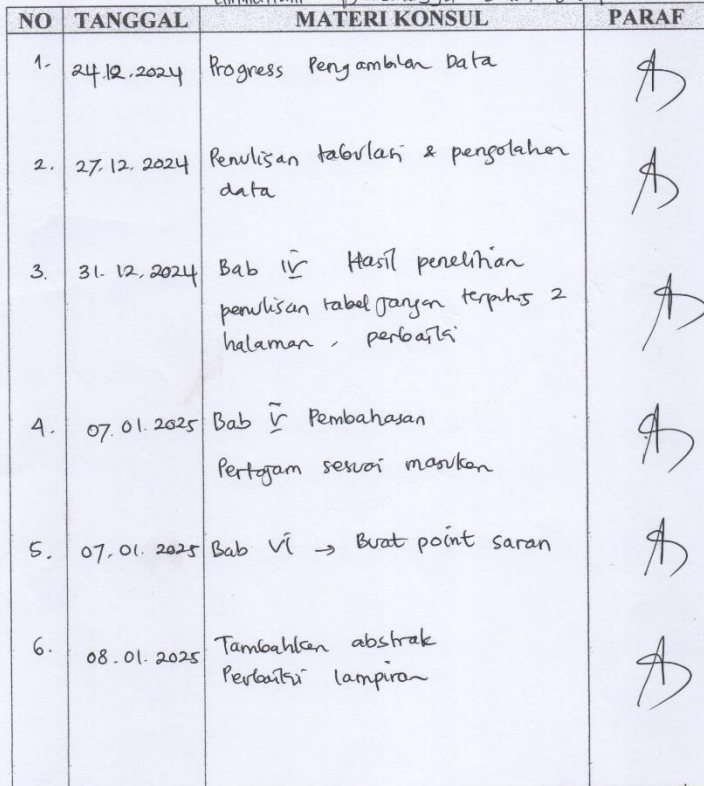 NO TANGGAL MATERI KONSUL PARAF
1. 24.12.2024 Progress Pengambilan Data
2. 27.12.2024 Penulisan tabulasi & pengolahan
data
3. 31.12.2024 Bab IV Hasil penelitian
penulisan tabel jangan terputus 2
halaman, perbaiki
4. 07.01.2025 Bab V Pembahasan
Pertajam sesuai masukan
5. 07.01.2025 Bab VI → Buat point saran
6. 08.01.2025 Tambahkan abstrak
Perbaiki lampiran